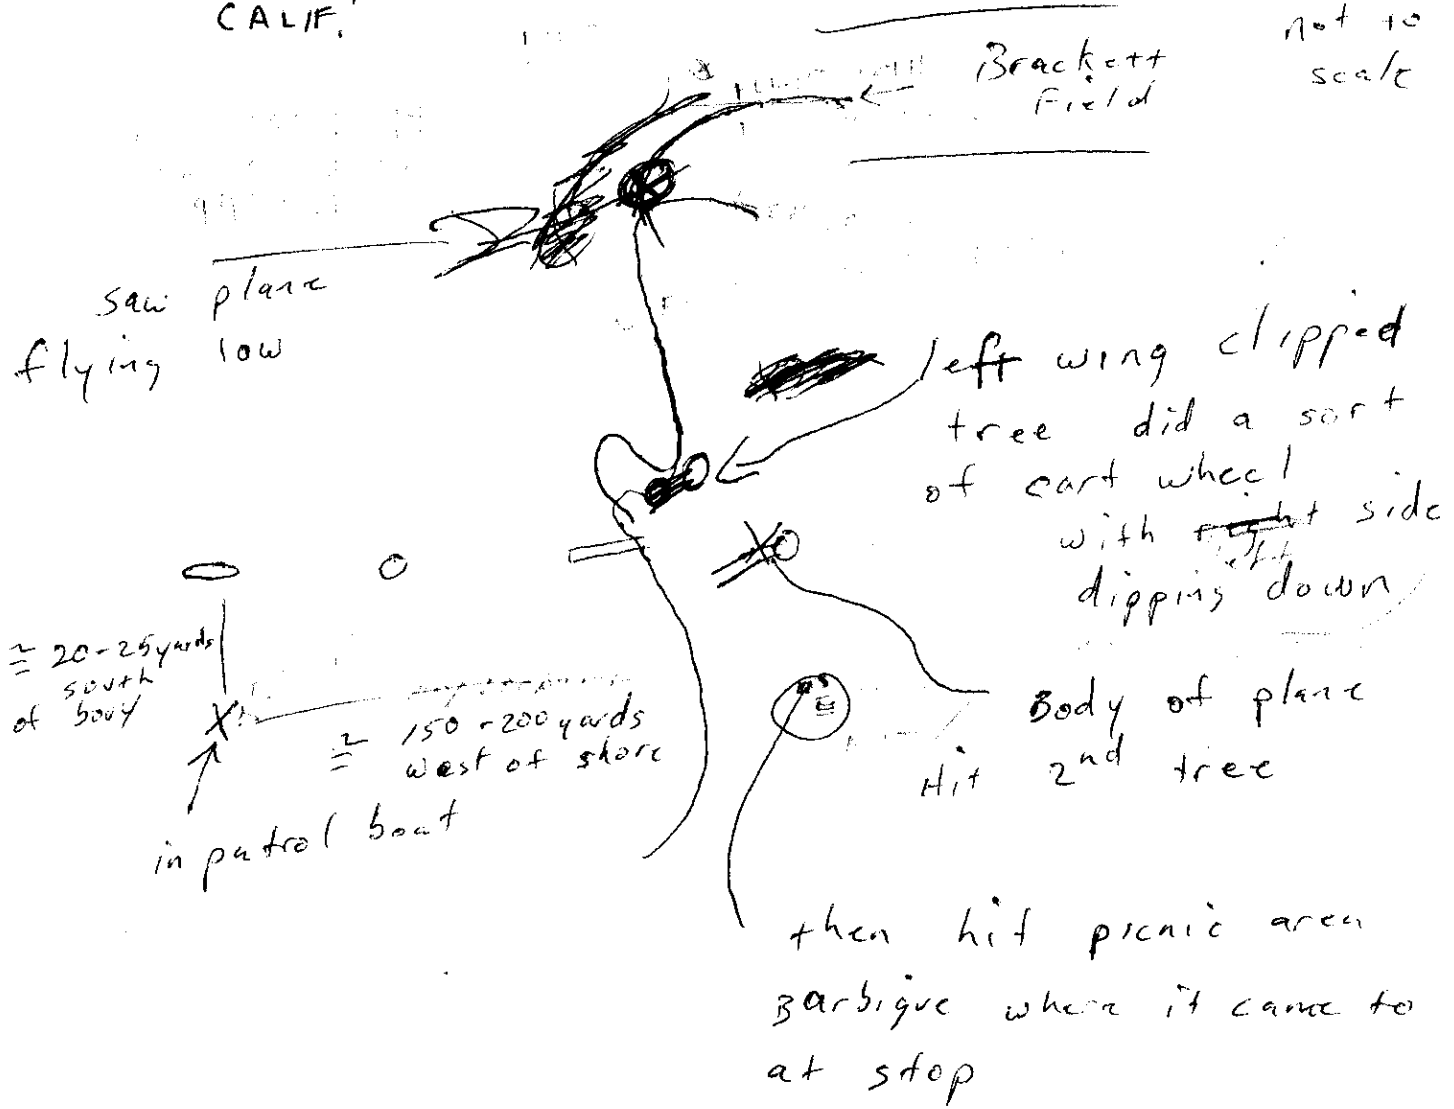 CALIF.
not to
scale
Brackett
Field
saw plane
flying low
left wing clipped
tree did a sort
of cart wheel
with right side
left
dipping down
≅ 20-25 yards
south
of bouy
≅ 150-200 yards
west of shore
in patrol boat
Body of plane
Hit 2nd tree
then hit picnic area
Barbique where it came to
at stop